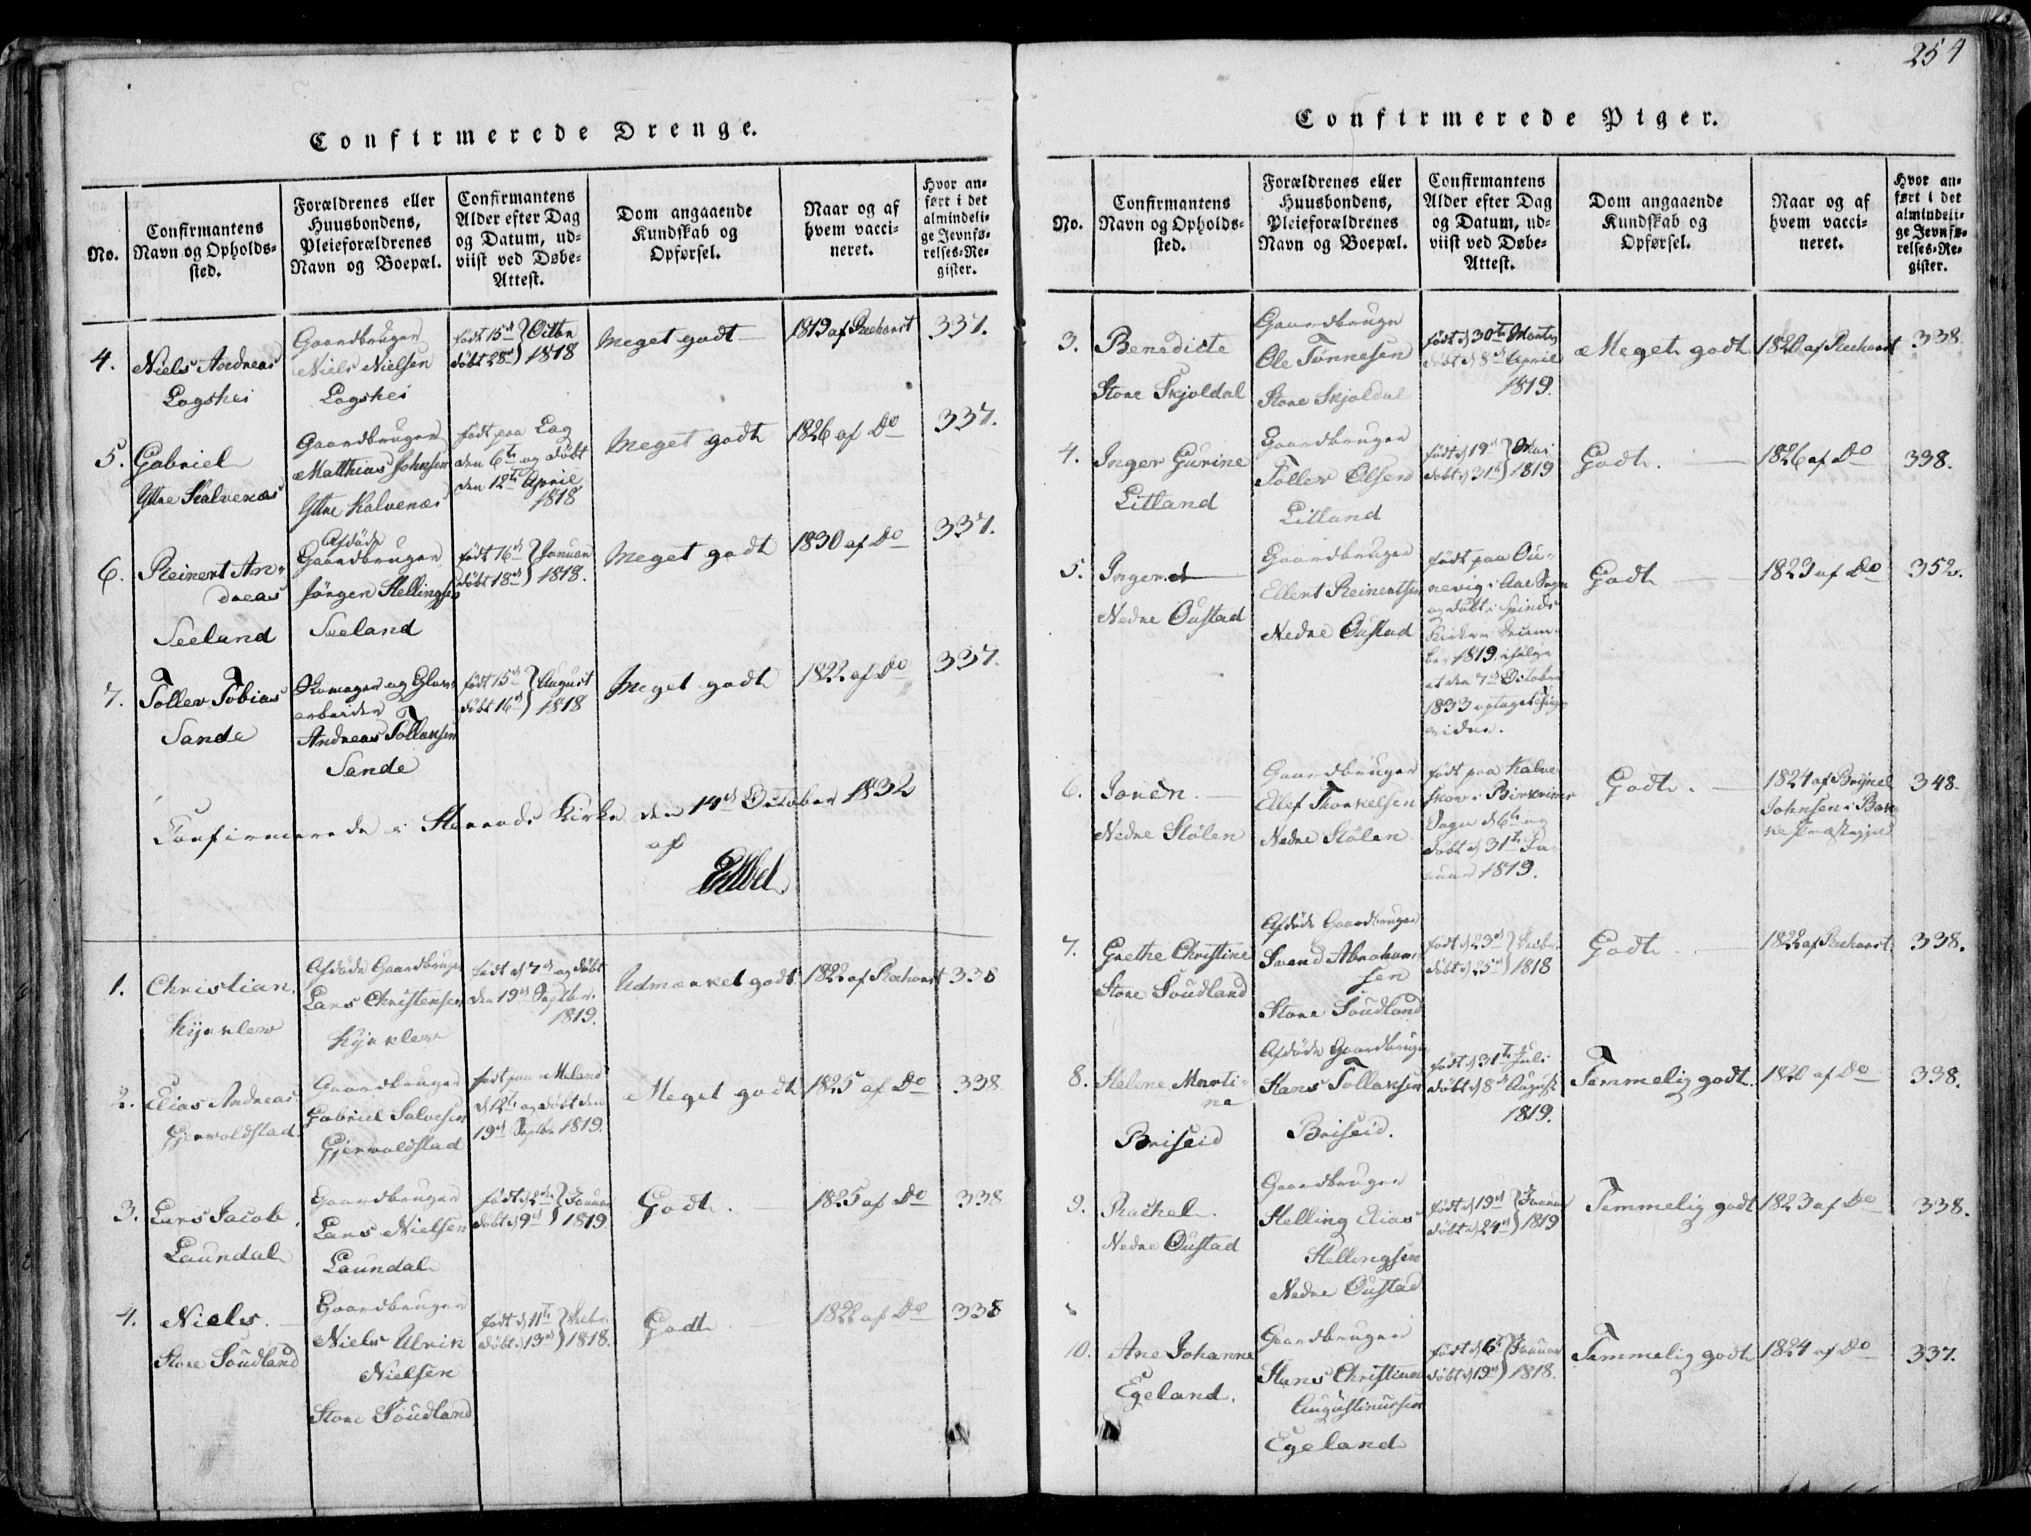 254
Confirmerede Drenge.
No.
Confirmantens
Navn og Opholds-
sted.
Forældrenes eller
Huusbondens,
Pleieforældrenes
Navn og Boepæl.
Confirmantens
Alder efter Dag
og Datum, ud-
viist ved Døbe-
Attest.
Dom angaaende
Kundskab og
Opførsel.
Naar og af
hvem vacci-
neret.
Hvor an-
ført i det
almindeli-
ge Jevnfø-
relses-Re-
gister.
4.
Niels Andreas
Logshei
Gaardbruger
Niels Nielsen
Logshei
født 15de
døbt 28de
1818
Meget godt
1819 af Reehorst
337.
5.
Gabriel
Ytre Kalvenæs
Gaardbruger
Matthias Johnsen
Ytre Kalvenæs
født paa Log
den 6te og døbt
den 12te April
1818
Meget godt
1826 af Do
337.
6.
Reinert An-
dreas
Seeland
Afdøde
Gaardbruger
Jörgen Hellingsen
Seeland
født 16de Januar
døbt 18de 1818.
Meget godt
1830 af Do
337.
7.
Tollev Tobias
Sande
Andreas Tollavsen
Sande
født 15de August
døbt 16de 1818
Meget godt
1822 af Do
337.
Confirmerede i Kirke den 14de October 1832
af
1.
Christian
Afdöde Gaardbruger
Lars Christensen
født d 7de og døbt
den 19de Septbr.
1819.
Udmærket godt
1822 af Reehorst
338
2.
Elias Andreas
Gjervoldstad
Gaardbruger
Gabriel Salvesen
Gjervoldstad
født paa
d 12te og døbt den
19de Septbr 1819.
Meget godt
1825 af Do
338.
3.
Lars Jacob
Laundal
Gaardbruger
Lars Nielsen
Laundal
født d 2den Januar
døbt d 9de 1819
Godt.
1825 af Do
338
4.
Niels
Store Soudland
Gaardbruger
Niels Ulrik
Nielsen
Store Soudland
født d 11te Febr.
døbt d 13de 1818.
Godt
1822 af Do
338
Confirmerede Piger.
No.
Confirmantens
Navn og Opholds-
sted.
Forældrenes eller
Huusbondens,
Pleieforældrenes
Navn og Boepæl.
Confirmantens
Alder efter Dag
og Datum, ud-
viist ved Døbe-
Attest.
Dom angaaende
Kundskab og
Opførsel.
Naar og af
hvem vacci-
neret.
Hvor an-
ført i det
almindeli-
ge Jevnfø-
relses-Re-
gister.
3.
Benedicte
Store Skjoldal
Gaardbruger
Ole Tönnesen
Store Skjoldal
født d 30te Marts
døbt d 8de April
1819.
Meget godt
1820 af Reehorst
338.
4.
Inger Gurine
Litland
Gaardbruger
Tollev Olsen
Litland
født d 19de Mai
døbt d 31te 1819
Godt.
1826 af Do
338.
5.
Inger
Nedre Oustad
Gaardbruger
Ellert Reinertsen
Nedre Oustad
født paa Ou-
nevig i Aae Sogn
og døbt i Spinds
Kirke i Decem-
ber 1819. ifølge
et den 7de October
1833 optaget Thing-
vidne.
Godt
1823 af Do
352.
6.
Joren.
Nedre Stölen
Gaardbruger
Ellef Thorkelsen
Nedre Stölen
født paa Kalve-
skov i Birkrims
Sogn d 6te og
døbt d 31te Ja-
nuar 1819.
Godt.
1824 af Brynel
Johnsen i Bak-
ke Præstegjeld
348.
7.
Grethe Christine
Store Soudland
Afdöde Gaardbruger
Svend Abraham-
sen
Store Soudland
født d 23de Febr.
døbt d 25de 1818
Godt
1822 af Reehorst
338.
8.
Helene Marti-
ne
Briseid
Afdöde Gaardbruger
Hans Tollavsen
Briseid.
født d 31te Juli
døbt d 8de August
1819.
Temmelig godt
1820 af Do
338.
9.
Rachel.
Nedre Oustad
Gaardbruger
Helling Elias
Hellingsen
Nedre Oustad
født d 19de Januar
døbt d 24de 1819
Temmelig godt
1823 af Do
338.
10.
Ane Johanne
Egeland.
Gaardbruger
Hans Christian
Augustinussen
Egeland
født d 6te Januar
døbt d 19de 1818.
Temmelig godt
1824 af Do
337.